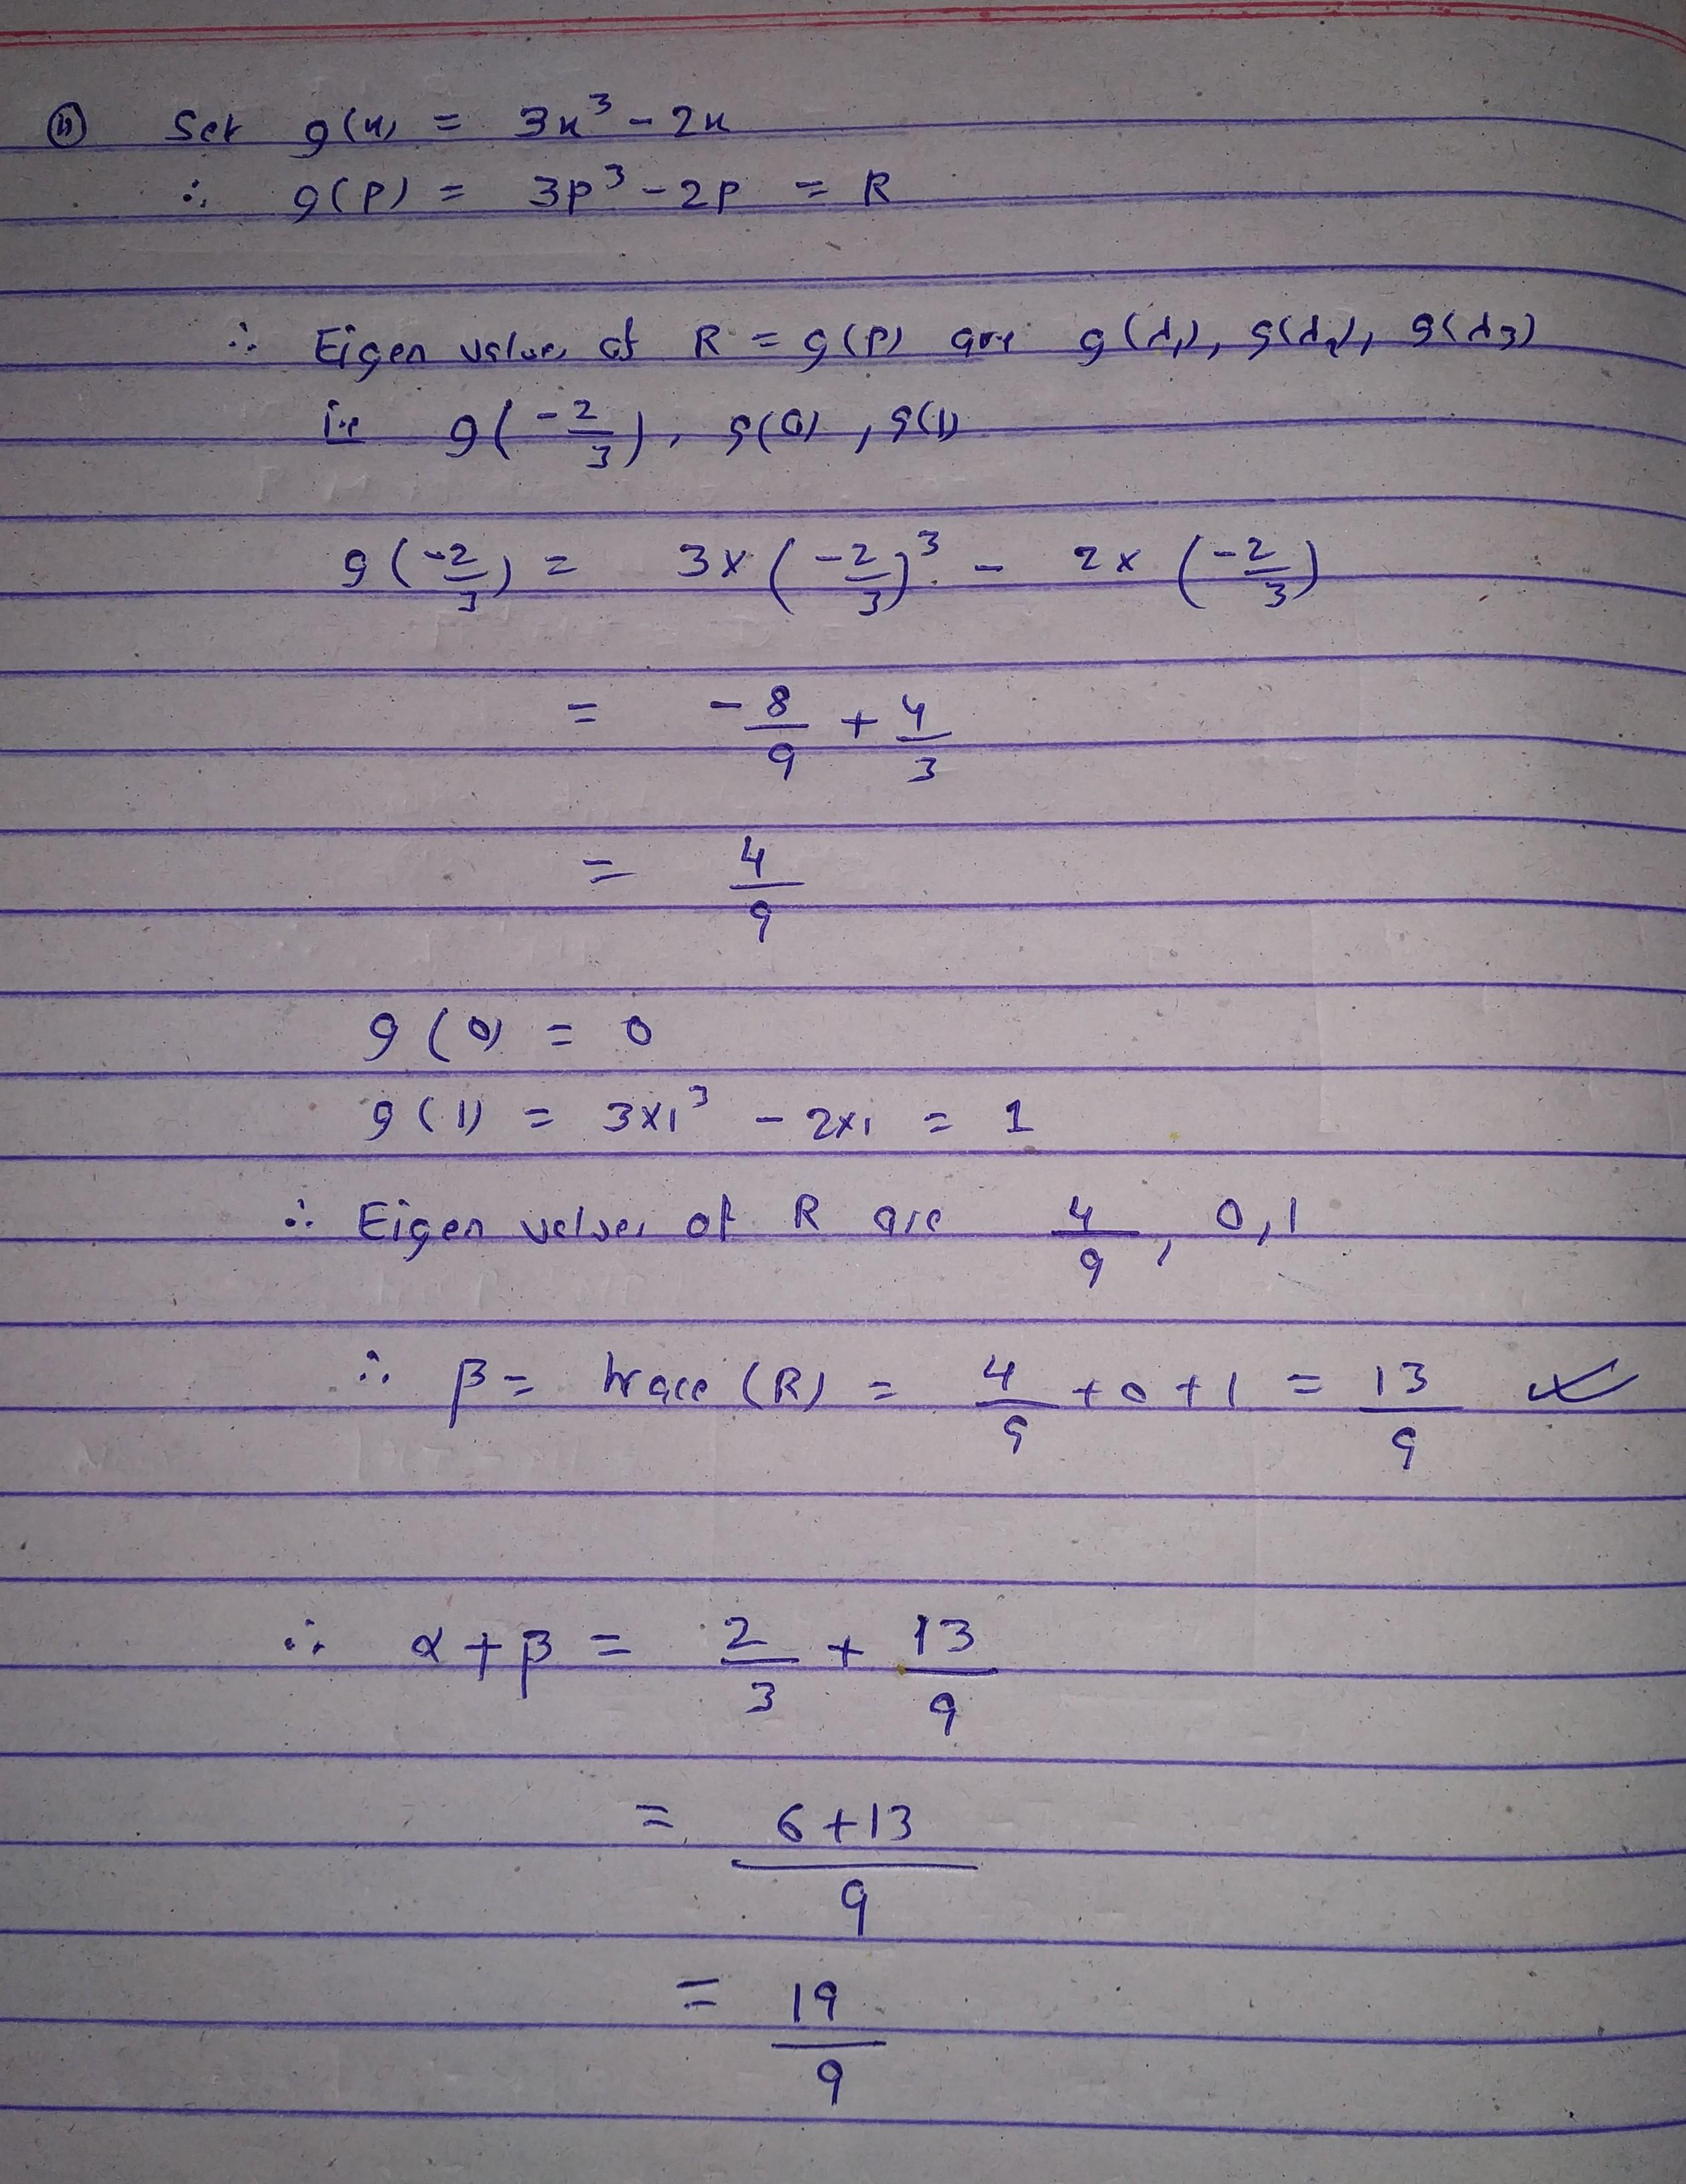 (ii) Set g(x) = 3x³ - 2x
∴ g(P) = 3P³ - 2P = R
∴ Eigen values of R = g(P) are g(λ₁), g(λ₂), g(λ3)
i.e g(-2/3), g(0), g(1)
g(-2/3) = 3×(-2/3)³ - 2×(-2/3)
= -8/9 + 4/3
= 4/9
g(0) = 0
g(1) = 3×1³ - 2×1 = 1
∴ Eigen values of R are 4/9, 0, 1
∴ β = trace(R) = 4/9 + 0 + 1 = 13/9
∴ α + β = 2/3 + 13/9
= 6+13/9
= 19/9